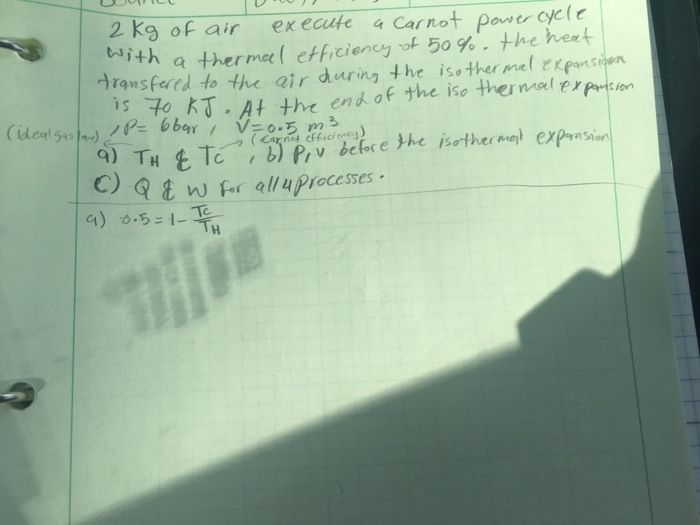 2 Kg of air execute a Carnot power cycle
with a thermal efficiency of 50%. the heat
transfered to the air during the isothermal expansion
is 70 KJ. At the end of the iso thermal expansion
, P= 6bar, V=0.5 m³
(ideal gas law) (carnot efficiency)
a) TH & TC , b) P,V before the isothermal expansion
C) Q & W for all 4 processes.
a) 0.5=1-Tc/TH